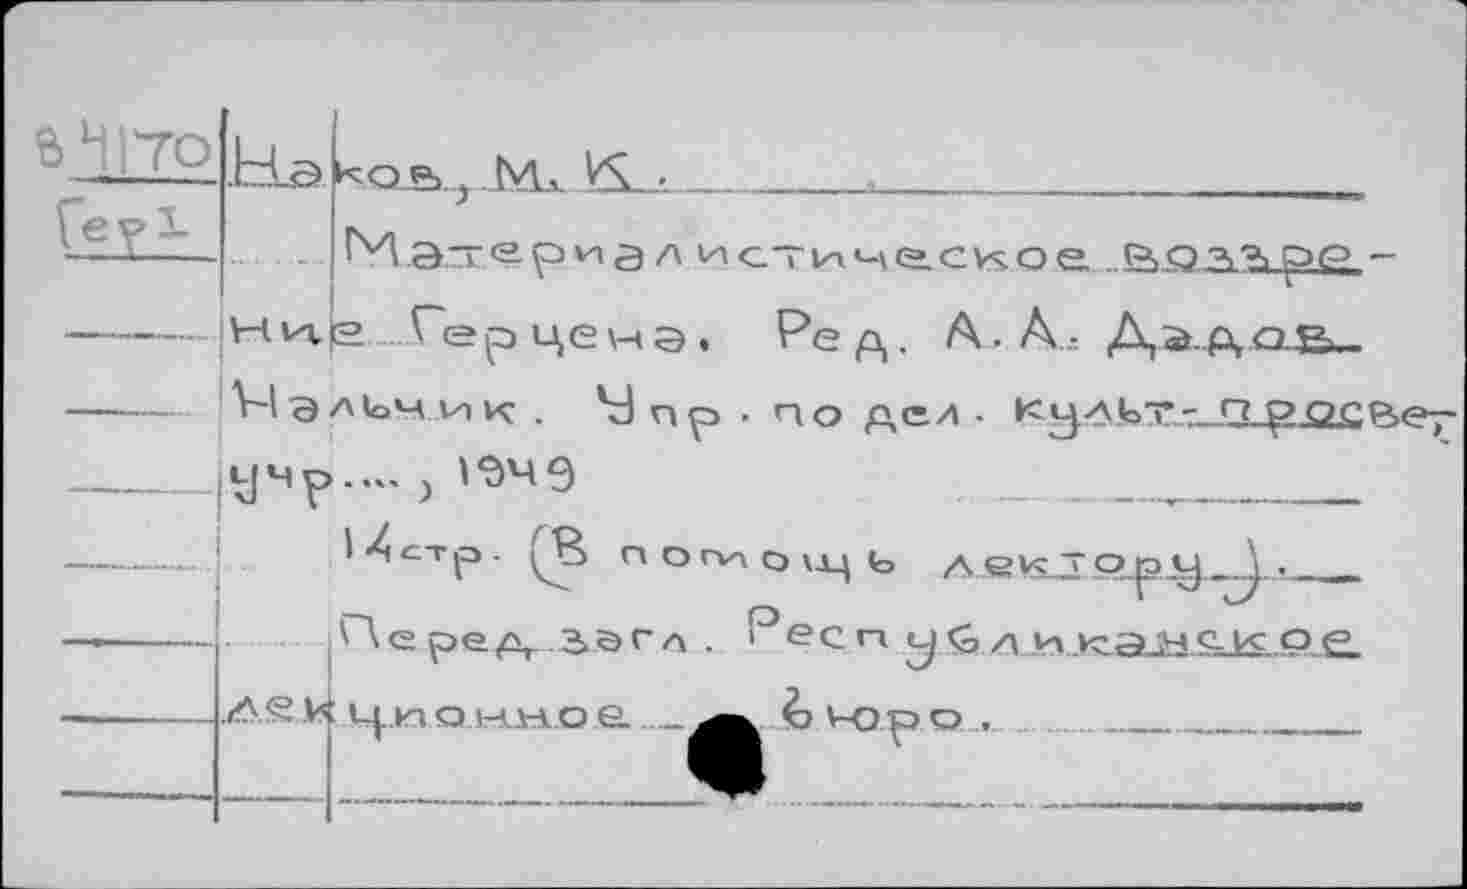 В4170 Наков, М. К.
Гер1 Материалистическое воззре-
ние Герцена. Ред. А. А. Дадов.
Нальчик. Упр. по дел. культ-просвет
учр...., 1949
14стр. (В помощь лектору).
Перед загл. Республиканское
лекционное бюро.